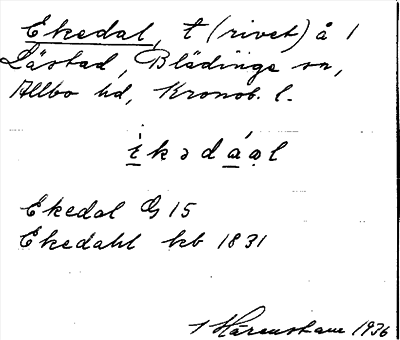 Ekedal, t (rivet) å 1
Lästad, Blädinge sn,
Allbo hd, Kronob. l.
ì̱kədá̱a̱l
Ekedal G 15
Ekedahl kb 1831
1936